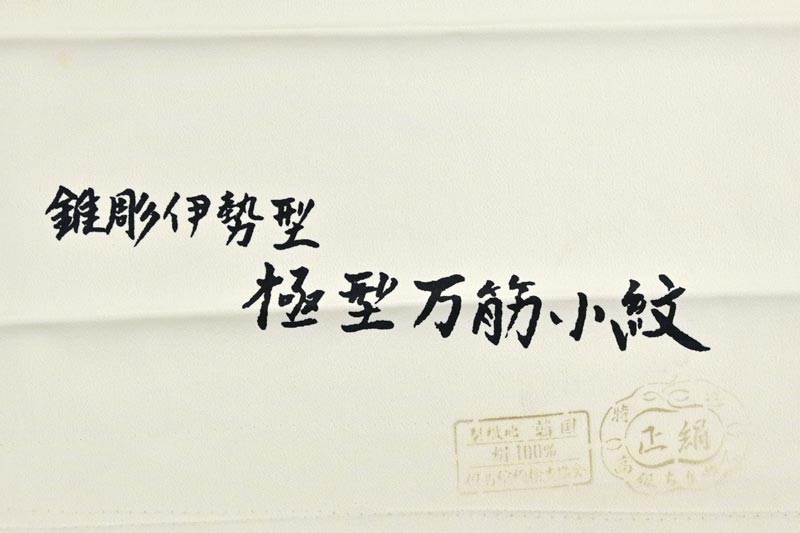 錐彫伊勢型
極型万筋小紋
製織地 韓国
絹100%
特
正絹
高級